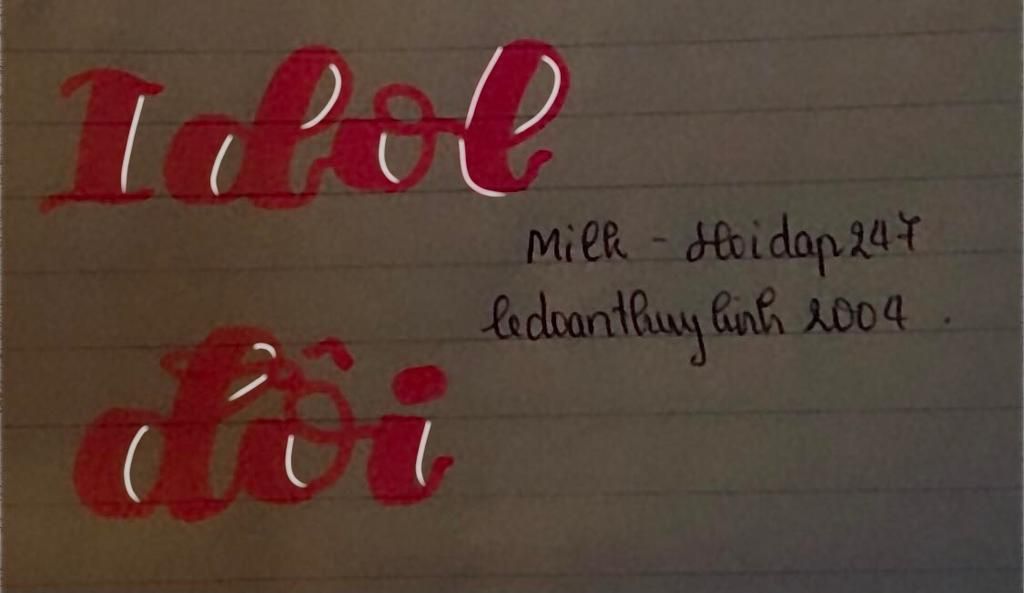 Idol
Milk - Hoidap247
ledoanthuylinh 2004.
đôi